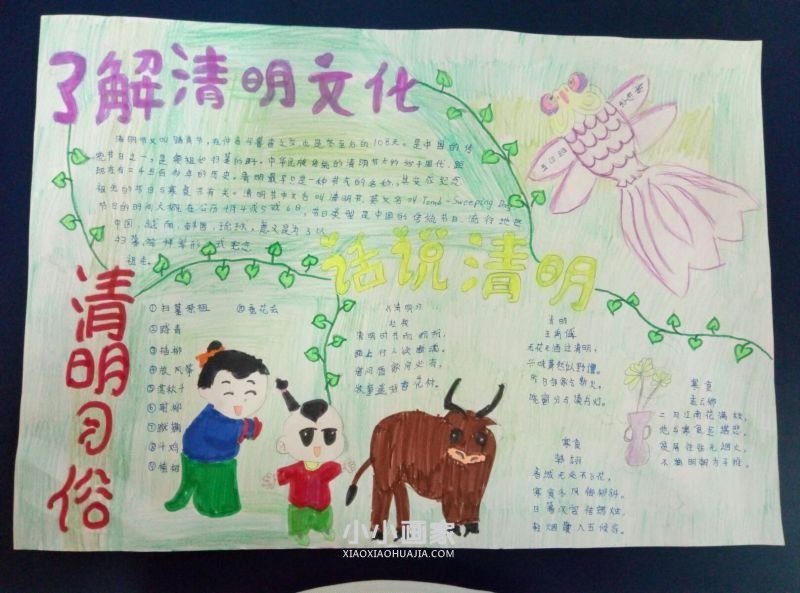 了解清明文化
清明节又叫踏青节，在仲春与暮春之交，也是冬至后的108天。是中国的传
统节日之一，是祭祖和扫墓的日子。中华民族传统的清明节大约始于周代，距
今已有二千五百多年的历史。清明最早只是一种节气的名称，其变成纪念
祖先的节日与寒食节有关。清明节中文名叫清明节，英文名叫Tomb-Sweeping Day
节日的时间大概在公历4月4或5或6日，节日类型是中国的传统节日、流行地
中国，越南，韩国，
扫墓
祖先
话说清明
清明习俗
①扫墓祭祖
⑩蚕花会
②踏青
③插柳
④放风筝
⑤荡秋千
⑥射柳
⑦蹴鞠
⑧斗鸡
⑨植树
清明
杜牧
清明时节雨纷纷，
路上行人欲断魂。
借问酒家何处有，
牧童遥指杏花村。
清明
王禹偁
无花无酒过清明，
兴味萧然似野僧。
昨日邻家乞新火，
晓窗分与读书灯。
寒食
韩翃
春城无处不飞花，
寒食东风御柳斜。
日暮汉宫传蜡烛，
轻烟散入五侯家。
寒食
孟云卿
二月江南花满枝，
他乡寒食远堪悲。
贫居往往无烟火，
不独明朝为子推。
小小画家
XIAOXIAOHUAJIA.COM